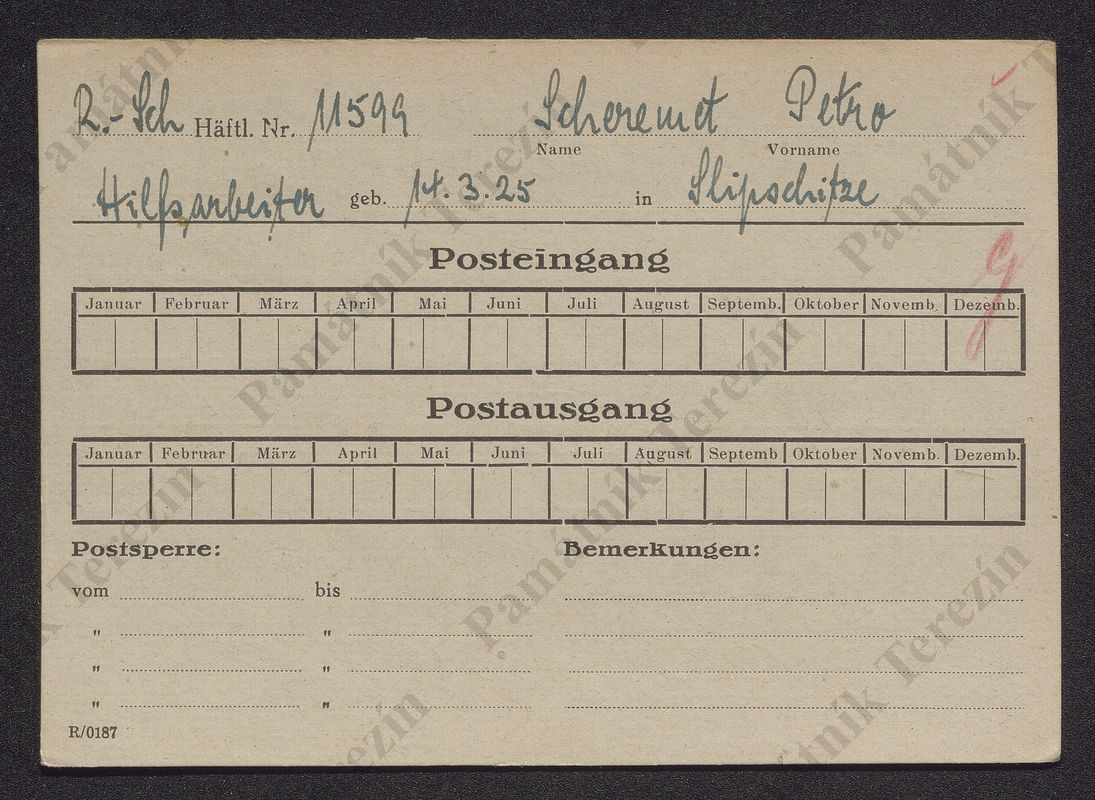 R.-Sch Häftl. Nr. 11599 Scheremet Petro
Name Vorname
Hilfsarbeiter geb. 14.3.25 in Slipschitze
Posteingang
Januar Februar März April Mai Juni Juli August Septemb. Oktober Novemb. Dezemb.
Postausgang
Januar Februar März April Mai Juni Juli August Septemb Oktober Novemb. Dezemb.
Postsperre: Bemerkungen:
vom bis
" "
" "
" "
R/0187
Památník Terezín